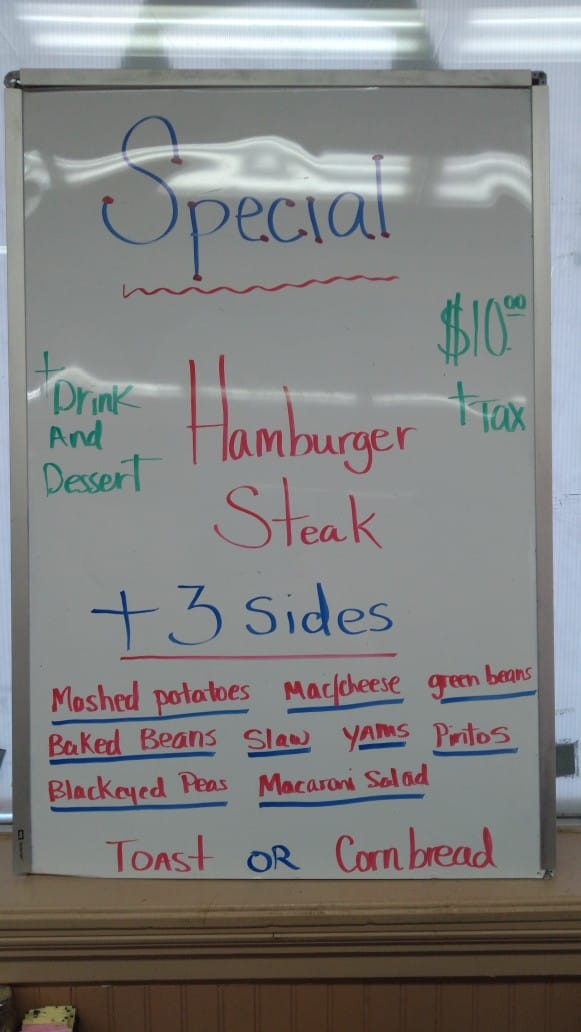 Special
$10.00
+ Tax
+
Drink
And
Dessert
Hamburger
Steak
+ 3 Sides
Mashed potatoes Mac/cheese green beans
Baked Beans Slaw YAMS Pintos
Blackeyed Peas Macaroni Salad
TOAST OR Cornbread